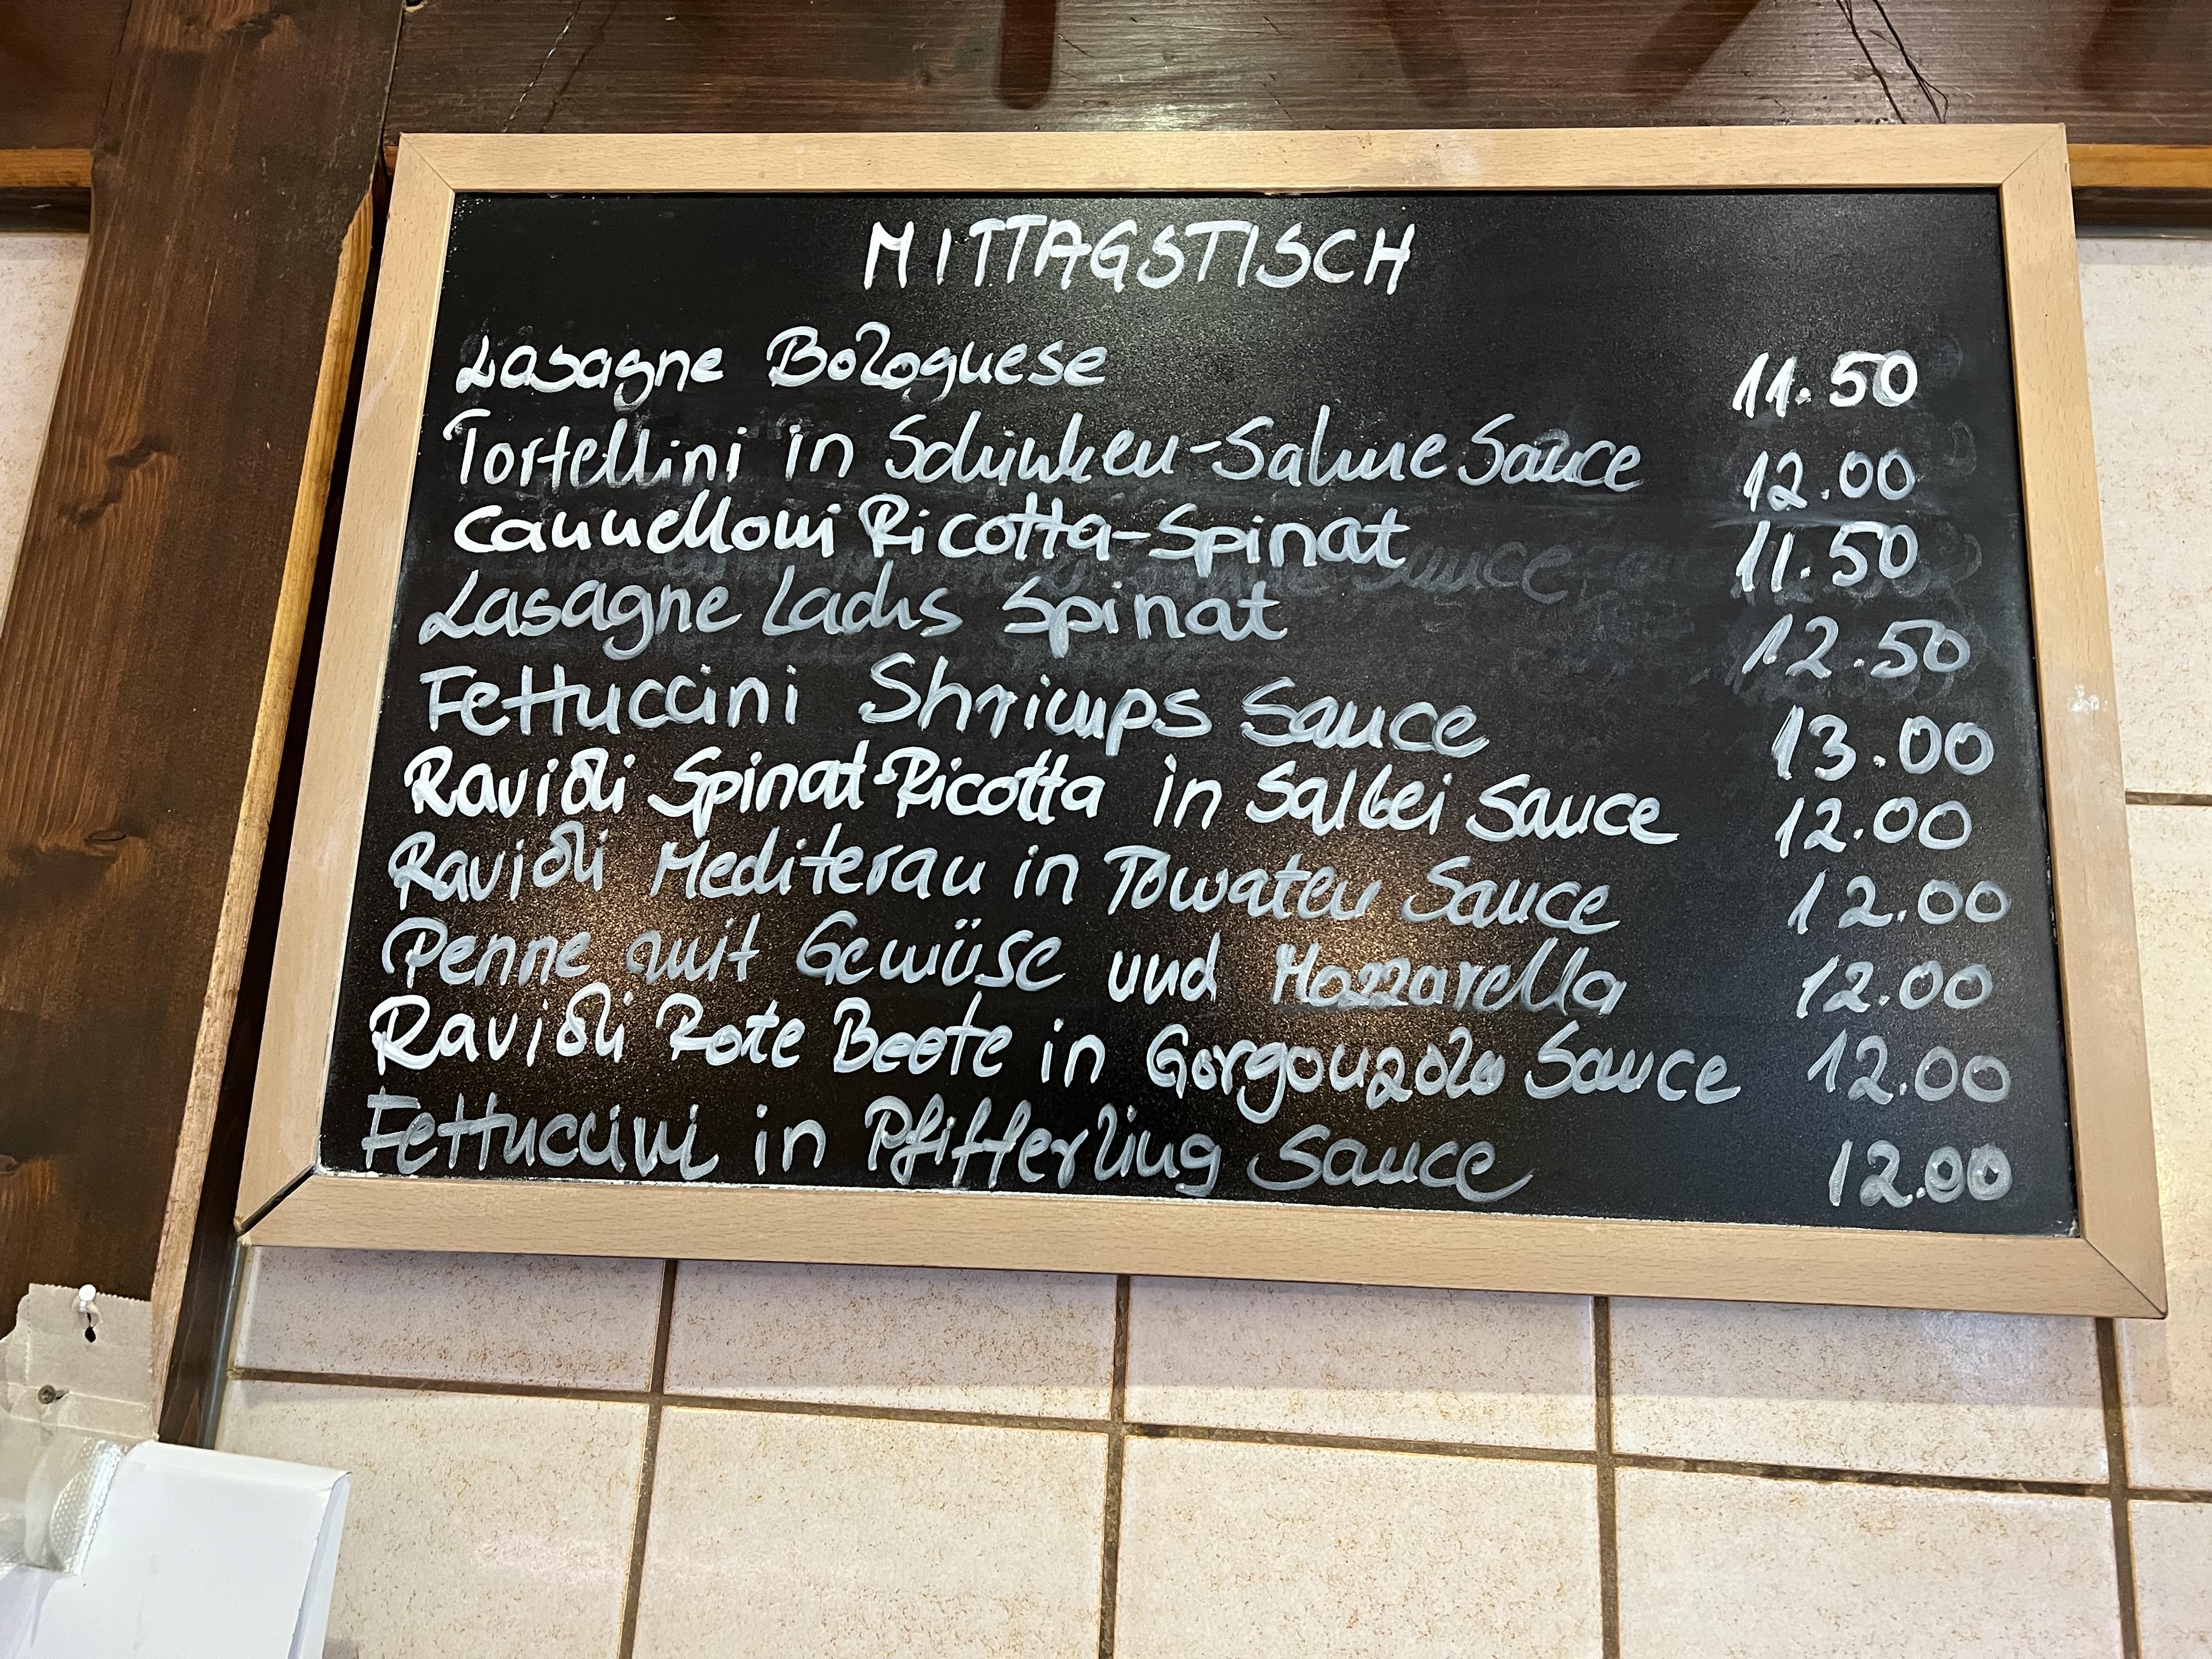 MITTAGSTISCH
Lasagne Bolognese 11.50
Tortellini in Schinken-Sahne Sauce 12.00
Cannelloni Ricotta-Spinat 11.50
Lasagne Lachs Spinat 12.50
Fettuccini Shrimps Sauce 13.00
Ravioli Spinat-Ricotta in Salbei Sauce 12.00
Ravioli Mediteran in Tomaten Sauce 12.00
Penne mit Gemüse und Mozzarella 12.00
Ravioli Rote Beete in Gorgonzola Sauce 12.00
Fettuccini in Pfifferling Sauce 12.00